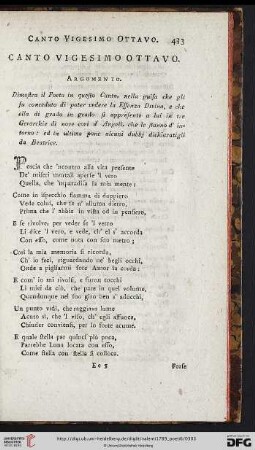 CANTO VIGESIMO OTTAVO. 433
CANTO VIGESIMO OTTAVO.
ARGOMENTO.
Dimostra il Poeta in questo Canto nella guisa che gli
fu conceduto di poter vedere la Essenza Divina, e che
ella di grado in grado si appresentò a lui in tre
Gerarchie di nove cori d' Angeli, che le stanno d' in-
torno: ed in ultimo pone alcuni dubbj dichiaratigli
da Beatrice.
Poscia che 'ncontro alla vita presente
De' miseri mortali aperse 'l vero
Quella, che 'mparadisa la mia mente:
Come in ispecchio fiamma di doppiero
Vede colui, che se n' alluma dietro,
Prima che l' abbia in vista od in pensiero,
E se rivolve, per veder se 'l vetro
Li dice 'l vero, e vede, ch' el s' accorda
Con esso, come nota con suo metro;
Così la mia memoria si ricorda,
Ch' io feci, riguardando ne' begli occhi,
Onde a pigliarmi fece Amor la corda:
E com' io mi rivolsi, e furon tocchi
Li miei da ciò, che pare in quel volume,
Quandunque nel suo giro ben s' adocchi,
Un punto vidi, che raggiava lume
Acuto sì, che 'l viso, ch' egli affuoca,
Chiuder conviensi, per lo forte acume.
E quale stella par quinci più poca,
Parrebbe Luna locata con esso,
Come stella con stella si colloca.
E e 5 Forse
UNIVERSITÄTS-
BIBLIOTHEK
HEIDELBERG
Gefördert durch die
DFG